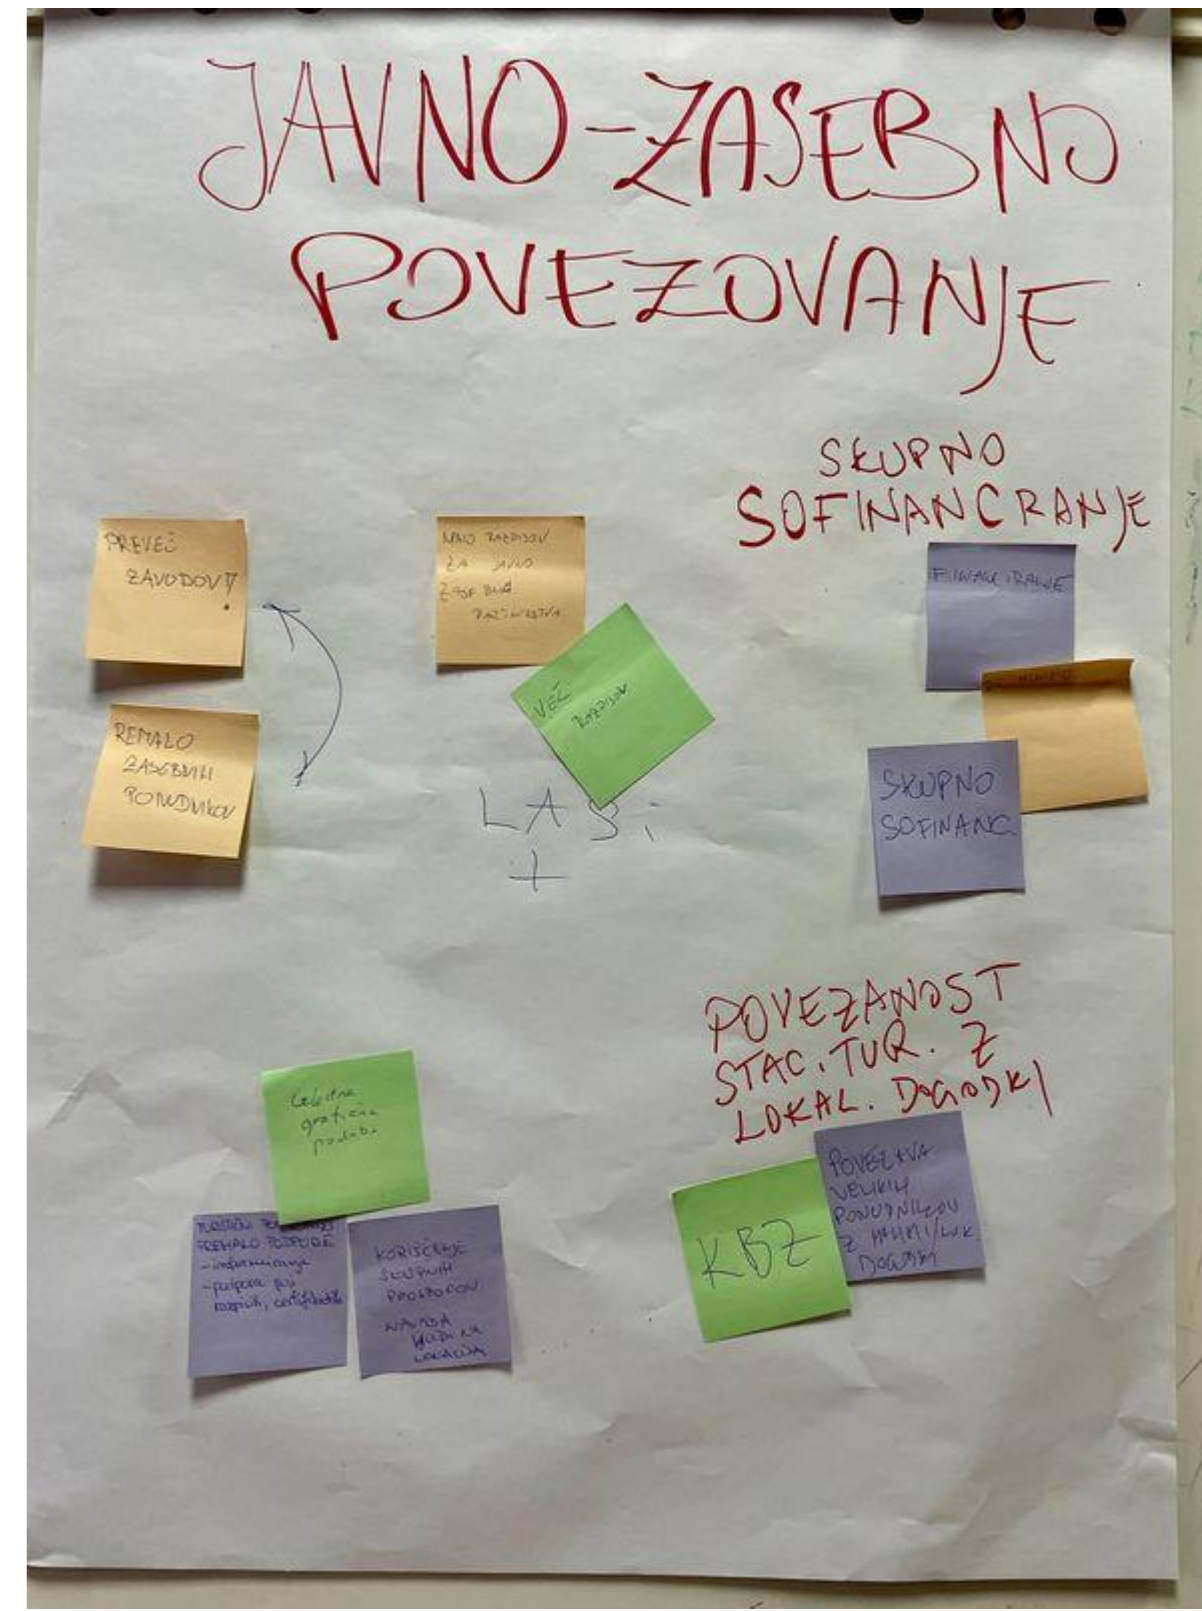 JAVNO-ZASEBNO
POVEZOVANJE
SKUPNO
SOFINANCRANJE
PREVEČ
ZAVODOV!
REMALO
ZASEBNIH
PONUDNIKOV
MALO RAZPISOV
ZA JAVNO
ZASEBNA
PARTNERSTVA
VEČ
RAZPISOV
LAS;
+
FINANCIRANJE
SKUPNO
SOFINANC.
POVEZANOST
STAC. TUR. Z
LOKAL. DOGODKI
Celostna
grafična
podoba
PREMALO PODPORE
- informiranje
- podpora pri
razpisih, certifikatih
KORIŠČENJE
SKUPNIH
PROSTOROV
NAVADA
LJUDI NA
LOKACIJA
KBZ
POVEZAVA
VELIKIH
PONUDNIKOV
Z MALIMI/LOK.
DOGODKI